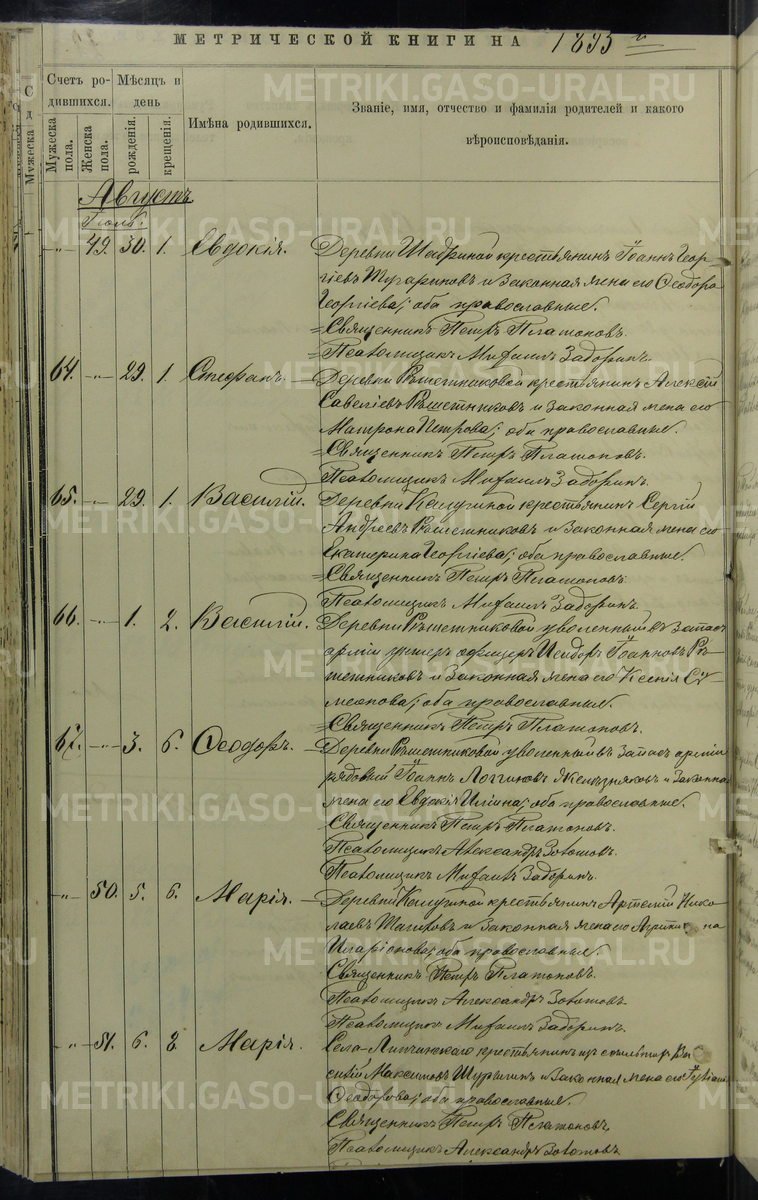 МЕТРИЧЕСКОЙ КНИГИ НА 1895
Счетъ родившихся.
Мѣсяцъ и день
Имѣна родившихся.
Званіе, имя, отчество и фамилія родителей и какого вѣроисповѣданія.
Мужеска пола.
Женска пола.
рожденія.
крещенія.
Августъ
Іюль.
-„- 49. 30. 1. Евдокія. Деревни Шадриной крестьянинъ Іоаннъ Геор-
гіевъ и законная жена его Ѳеодора
Георгіева; оба православные.
Священникъ Петръ Платоновъ.
Псаломщикъ Михаилъ Задоринъ.
64. -„- 29. 1. Стефанъ. Деревни Рѣшетниковой крестьянинъ Алексій
Савеліевъ Рѣшетниковъ и законная жена его
Матрона Петрова; оба православные.
Священникъ Петръ Платоновъ.
Псаломщикъ Михаилъ Задоринъ.
65. -„- 29. 1. Василій. Деревни Калугиной крестьянинъ Сергій
Андреевъ Рѣшетниковъ и законная жена его
Екатерина Георгіева; оба православные.
Священникъ Петръ Платоновъ.
Псаломщикъ Михаилъ Задоринъ.
66. -„- 1. 2. Василій. Деревни Рѣшетниковой уволенный въ запасъ
арміи унтеръ офицеръ Исидоръ Іоанновъ Рѣ-
шетниковъ и законная жена его Ксенія Си-
меонова; оба православные.
Священникъ Петръ Платоновъ.
67. -„- 3. 6. Ѳеодоръ. Деревни Рѣшетниковой уволенный въ запасъ арміи
рядовый Іоаннъ Логгиновъ Желѣзняковъ и законна
жена его Евдокія Иліина; оба православные.
Священникъ Петръ Платоновъ.
Псаломщикъ Александръ Зотовъ.
Псаломщикъ Михаилъ Задоринъ.
-„- 50. 5. 6. Марія. Деревни Калугиной крестьянинъ Артемій Нико-
лаевъ и законная жена его
Иларіонова; оба православные.
Священникъ Петръ Платоновъ.
Псаломщикъ Александръ Зотовъ.
Псаломщикъ Михаилъ Задоринъ.
-„- 51. 6. 8. Марія. Села Липчинскаго крестьянинъ изъ Ва-
силій Максимовъ и законная жена его
Ѳеодорова; оба православные.
Священникъ Петръ Платоновъ.
Псаломщикъ Александръ Зотовъ.
METRIKI.GASO-URAL.RU